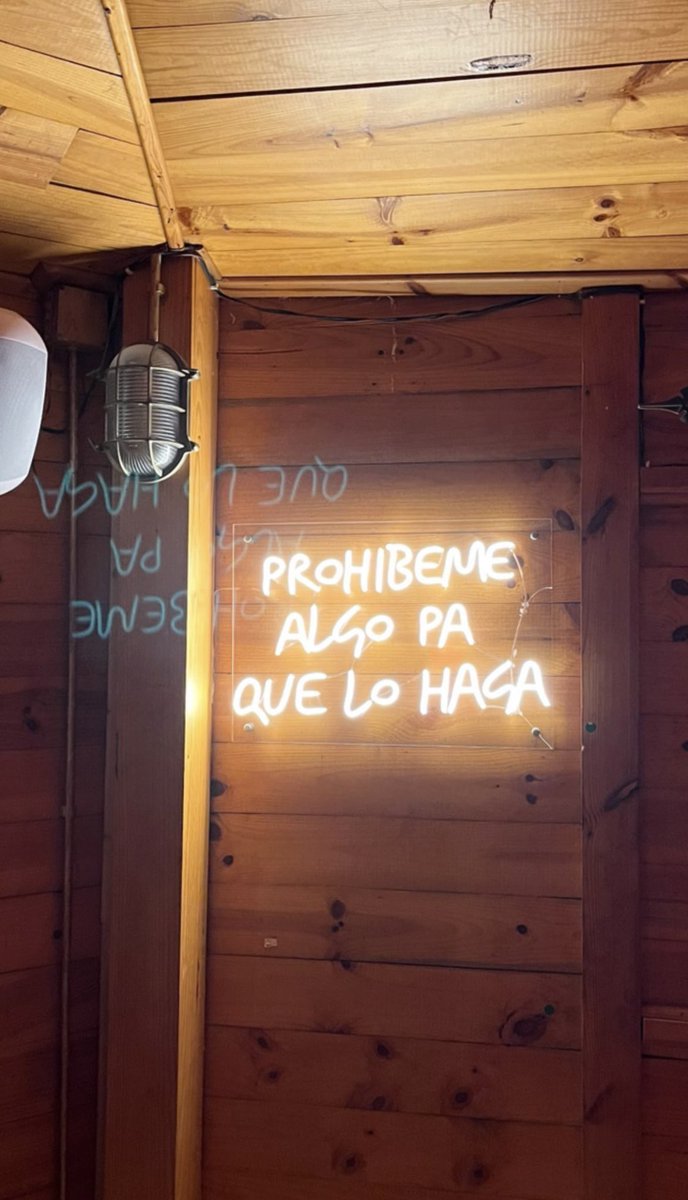 PROHIBEME
ALGO PA
QUE LO HAGA